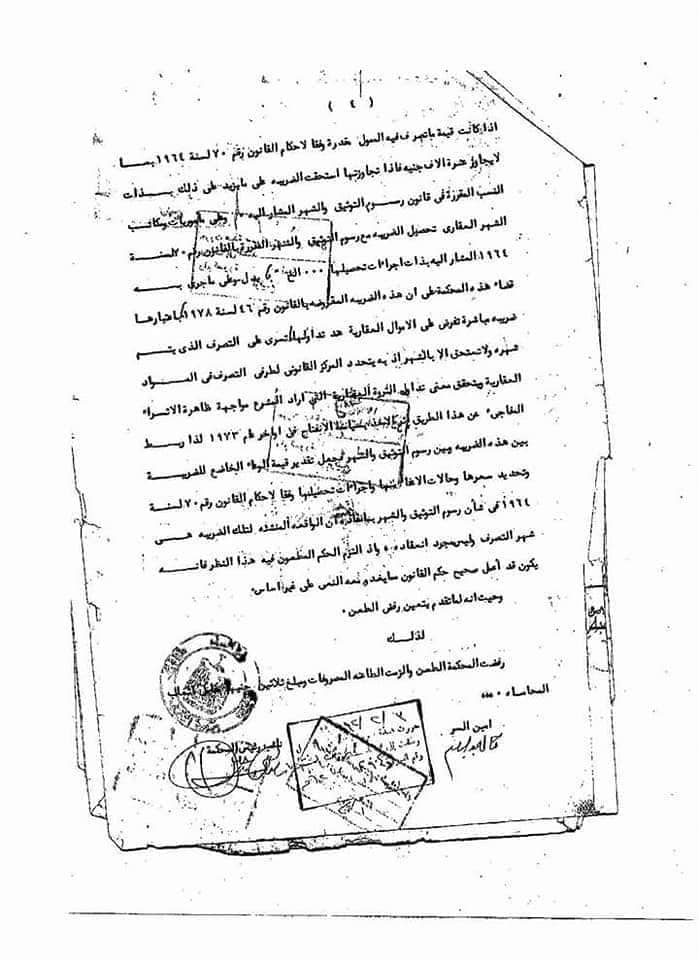 ( ٤ )
اذا كانت قيمة ماتصرف فيه الممول مقدرة وفقا لاحكام القانون رقم ٧٠ لسنة ١٩٦٤ بمـــا
لايجاوز عشرة الاف جنيه فاذا تجاوزتها استحقت الضريبه على مايزيد على ذلك بـــذات
النسب المقررة فى قانون رسـوم التوثيق والشهر المشار اليه وعلى مأموريات ومكاتب
الشهر العقارى تحصيل الضريبه مع رسوم التوثيق والشهر المقررة بالقانون رقم ٧٠ لسنة
١٩٦٤ المشار اليه بذات اجراءات تحصيلها ٠٠٠ الخ يدل وعلى ماجرى بـــه
قضاء هذه المحكمة على ان هذه الضريبه المفروضه بالقانون رقم ٤٦ لسنة ١٩٧٨ باعتبارها
ضريبه مباشرة تفرض على الاموال العقارية عند تداولها تسرى على التصرف الذى يتـــم
شهره ولا تستحق الا بالشهر اذ به يتحدد المركز القانونى لطرفى التصرف فى المـــواد
العقارية ويتحقق معنى تداول الثروة العقارية التى اراد المشرع مواجهة ظاهرة الاثـــراء
الفاجىء عن هذا الطريق بعد الاخذ بسياسة الانفتاح فى اواخر عام ١٩٧٣ لذا ربـــط
بين هذه الضريبه وبين رسوم التوثيق والشهر فجعل تقدير قيمة الوعاء الخاضع للضريبـــة
وتحديد سعرها وحالات الاعفاء منها واجراءات تحصيلها وفقا لاحكام القانون رقم ٧٠ لسنة
١٩٦٤ فى شأن رسوم التوثيق والشهر بما مفاده ان الواقعه المنشئه لتلك الضريبه هـــى
شهر التصرف وليس مجرد انعقاده ٠ واذ التزم الحكم المطعون فيه هذا النظر فانـــه
يكون قد أعمل صحيح حكم القانون مما يغدو معه النعى على غير اساس ٠
وحيث انه لما تقدم يتعين رفض الطعن ٠
لذلـــك
رفضت المحكمة الطعن والزمت الطاعنه المصروفات ومبلغ ثلاثين جنيها مقابل اتعاب
المحاماه ٠
امين السر
نائب رئيس المحكمة